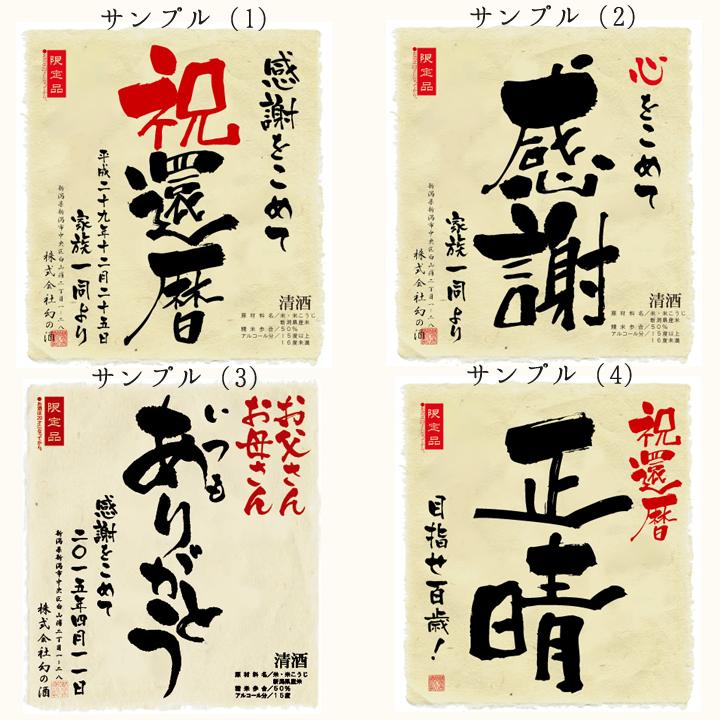 サンプル（1）
限定品
感謝をこめて
祝
還暦
平成二十九年十二月二十五日
家族一同より
新潟県新潟市中央区白山浦二丁目一－二八
株式会社幻の酒
清酒
原材料名／米・米こうじ
新潟県産米
精米歩合／50％
アルコール分／15度以上
16度未満
サンプル（2）
限定品
心をこめて
感謝
家族一同より
新潟県新潟市中央区白山浦二丁目一－二八
株式会社幻の酒
清酒
原材料名／米・米こうじ
新潟県産米
精米歩合／50％
アルコール分／15度以上
16度未満
サンプル（3）
限定品
●お酒は20才になってから。
お父さん
お母さん
いつも
ありがとう
感謝をこめて
二〇一五年四月一一日
新潟県新潟市中央区白山浦二丁目一－二八
株式会社幻の酒
清酒
原材料名／米・米こうじ
新潟県産米
精米歩合／50％
アルコール分／15度
サンプル（4）
限定品
祝還暦
正晴
目指せ百歳！